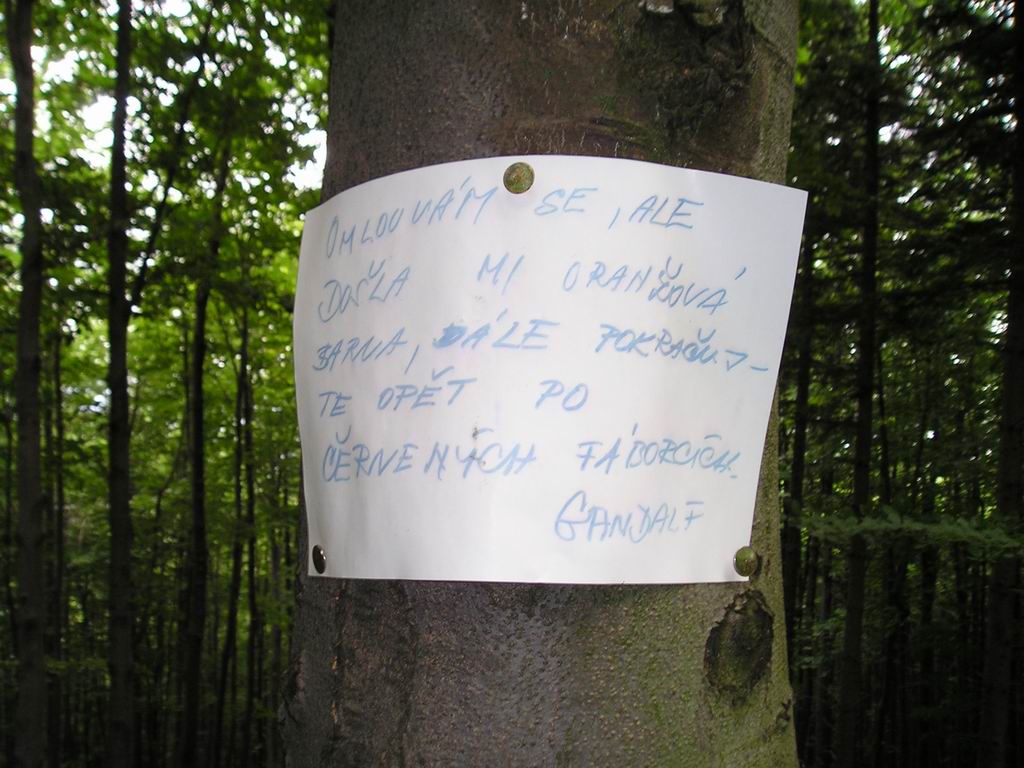 OMLOUVÁM SE, ALE
DOŠLA MI ORANŽOVÁ
BARVA, DÁLE POKRAČUJ-
TE OPĚT PO
ČERVENÝCH FÁBORCÍCH.
GANDALF